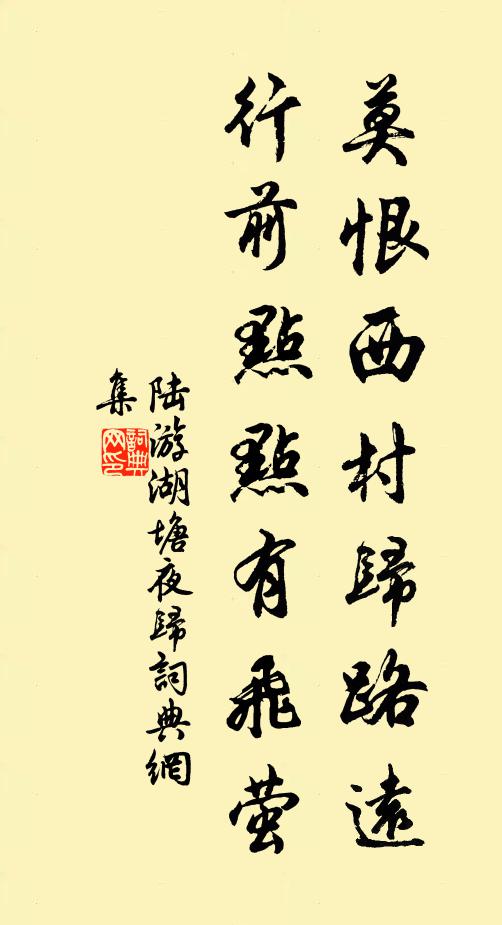 莫恨西村歸路遠
行前點點有飛螢
陆游湖塘夜歸詞典網
集
詞典
网印